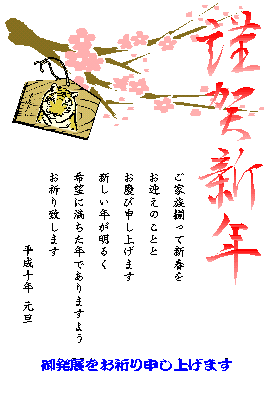 謹賀新年
ご家族揃って新春を
お迎えのことと
お慶び申し上げます
新しい年が明るく
希望に満ちた年でありますよう
お祈り致します
平成十年 元旦
御発展をお祈り申し上げます